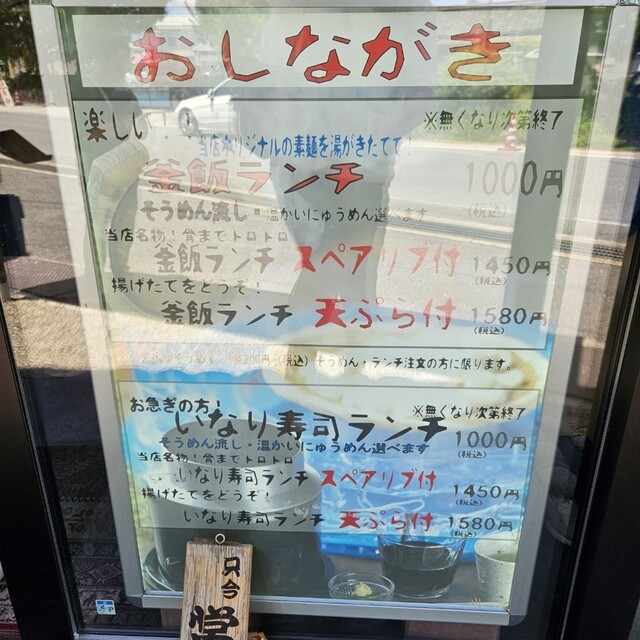 おしながき
楽しい！！
※無くなり次第終了
当店オリジナルの素麺を湯がきたてで！
釜飯ランチ 1000円
そうめん流し・温かいにゅうめん選べます (税込)
当店名物！骨までトロトロ
釜飯ランチ スペアリブ付 1450円
(税込)
揚げたてをどうぞ！
釜飯ランチ 天ぷら付 1580円
(税込)
(税込) そうめん・ランチ注文の方に限ります。
お急ぎの方！
※無くなり次第終了
いなり寿司ランチ 1000円
そうめん流し・温かいにゅうめん選べます (税込)
当店名物！骨までトロトロ
いなり寿司ランチ スペアリブ付 1450円
(税込)
揚げたてをどうぞ！
いなり寿司ランチ 天ぷら付 1580円
(税込)
只今
営